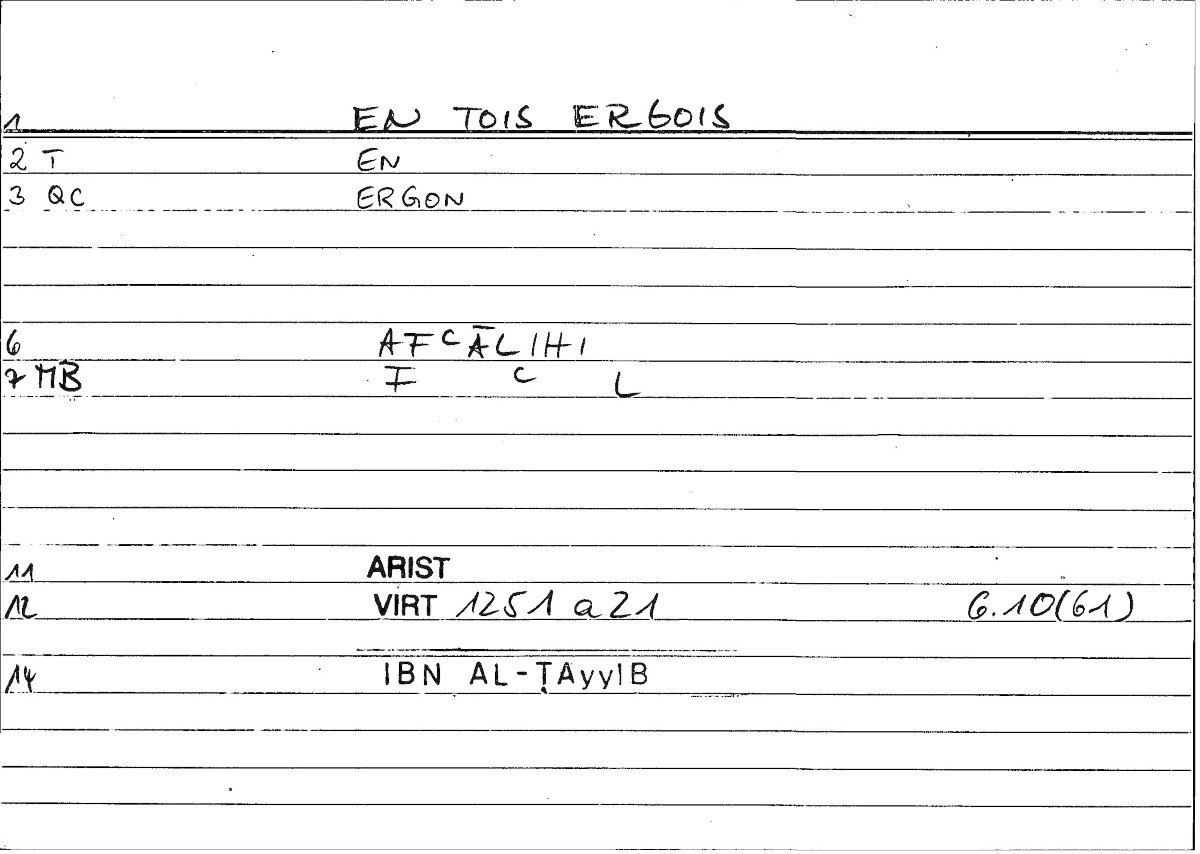 1 EN TOIS ERGOIS
2 T EN
3 QC ERGON
6 AFCĀLIHI
7 MB F C L
11 ARIST
12 VIRT 1251 a 21 6.10(61)
14 IBN AL-ṬAyyIB